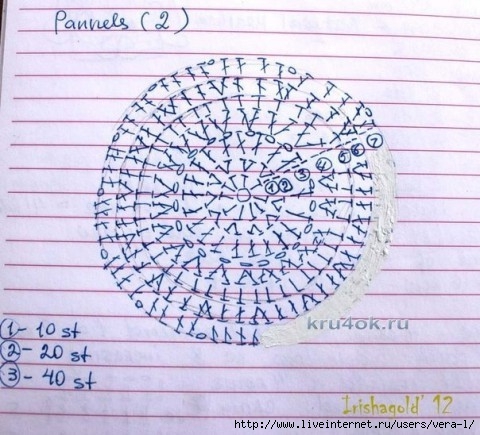 Pannels (2)
1 2 3 4 5 6 7
1 - 10 st
2 - 20 st
3 - 40 st
kru4ok.ru
Irishagold' 12
http://www.liveinternet.ru/users/vera-l/